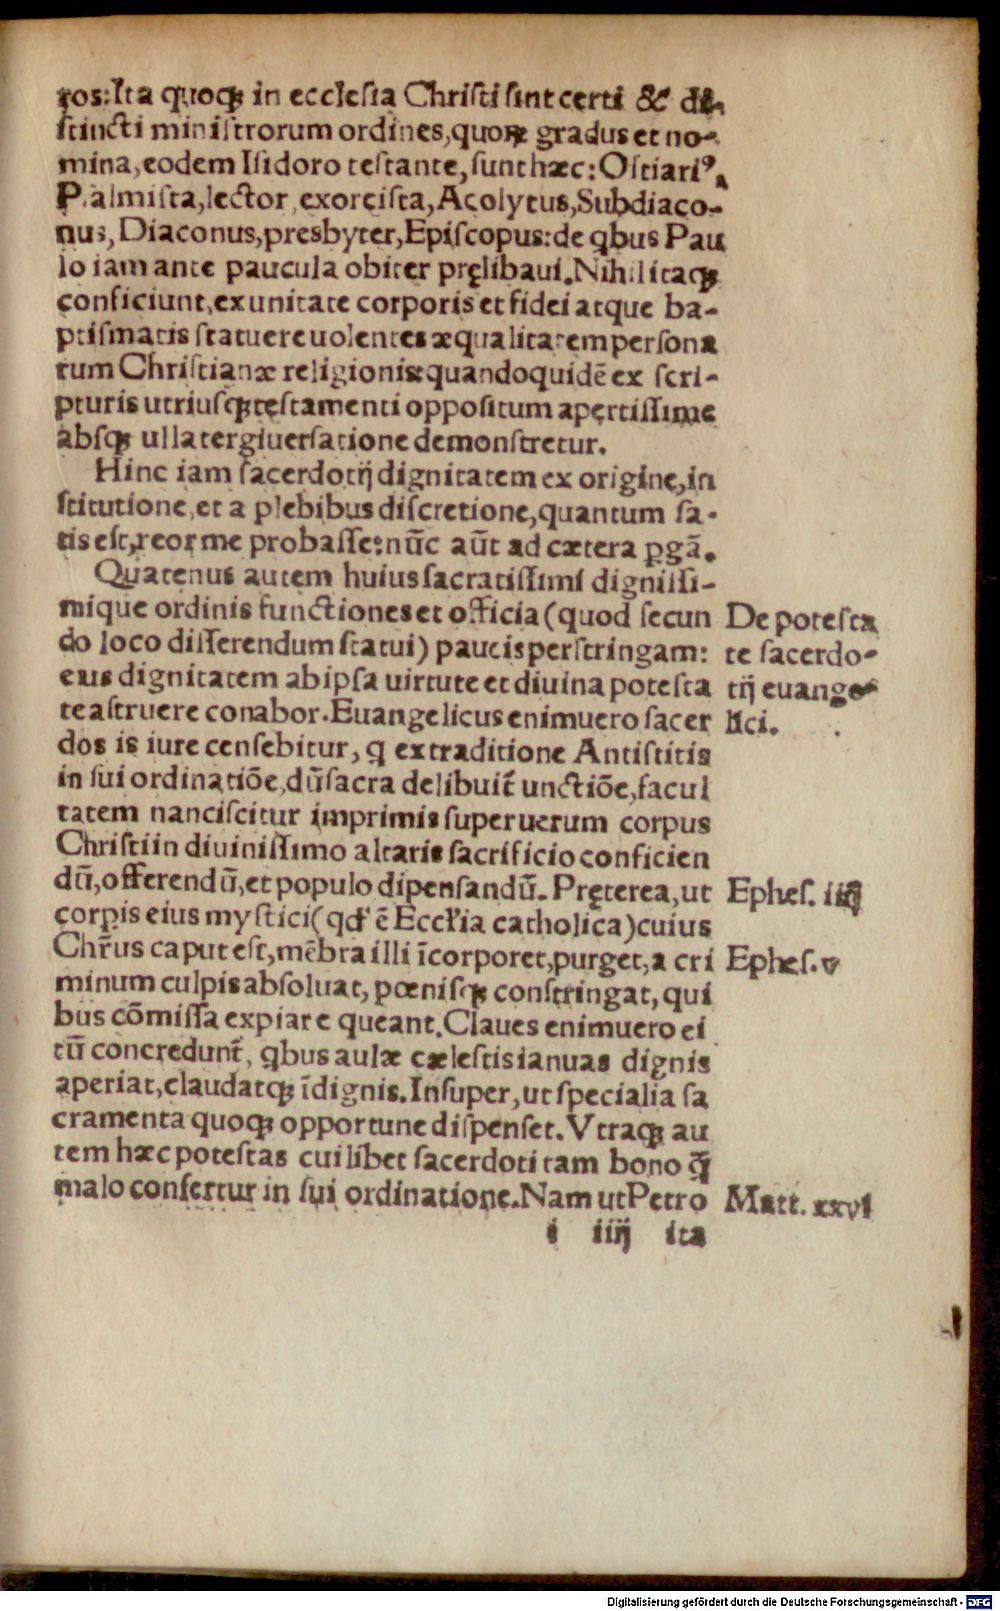 ros: Ita quoqꝫ in ecclesia Christi sint certi & di-
stincti ministrorum ordines, quoꝝ gradus et no-
mina, eodem Isidoro testante, sunt hæc: Ostiariꝰ,
Psalmista, lector, exorcista, Acolytus, Subdiaco-
nus, Diaconus, presbyter, Episcopus: de qbus Pau
lo iam ante paucula obiter pręlibaui. Nihil itaqꝫ
conficiunt, ex unitate corporis et fidei atque ba-
ptismatis statuere uolentes æqualitatem persona
rum Christianæ religionis: quandoquidē ex scri-
pturis utriusqꝫ testamenti oppositum apertissime
absqꝫ ulla tergiuersatione demonstretur.
Hinc iam sacerdotij dignitatem ex origine, in
stitutione, et a plebibus discretione, quantum sa-
tis est, reor me probasse: nūc aūt ad cætera ꝑgā.
Quatenus autem huius sacratissimi dignissi-
mique ordinis functiones et officia (quod secun
do loco disserendum statui) paucis perstringam:
eius dignitatem ab ipsa uirtute et diuina potesta
te astruere conabor. Euangelicus enimuero sacer
dos is iure censebitur, q ex traditione Antistitis
in sui ordinatiōe, dū sacra delibuit̃ unctiōe, facul
tatem nanciscitur imprimis super uerum corpus
Christi in diuinissimo altaris sacrificio conficien
dū, offerendū, et populo dipensandū. Pręterea, ut
corꝑis eius mystici (qd' ē Eccl'ia catholica) cuius
Chr̃us caput est, mēbra illi īcorporet, purget, a cri
minum culpis absoluat, pœnisqꝫ constringat, qui
bus cōmissa expiare queant. Claues enimuero ei
tū concredunt̃, qbus aulæ cælestis ianuas dignis
aperiat, claudatqꝫ īdignis. Insuper, ut specialia sa
cramenta quoqꝫ opportune dispenset. Vtraqꝫ au
tem hæc potestas cuilibet sacerdoti tam bono q̃
malo confertur in sui ordinatione. Nam ut Petro
i iiij ita
De potesta
te sacerdo-
tij euange-
lici.
Ephes. iiij
Ephes. v
Matt. xxvi
Digitalisierung gefördert durch die Deutsche Forschungsgemeinschaft - DFG